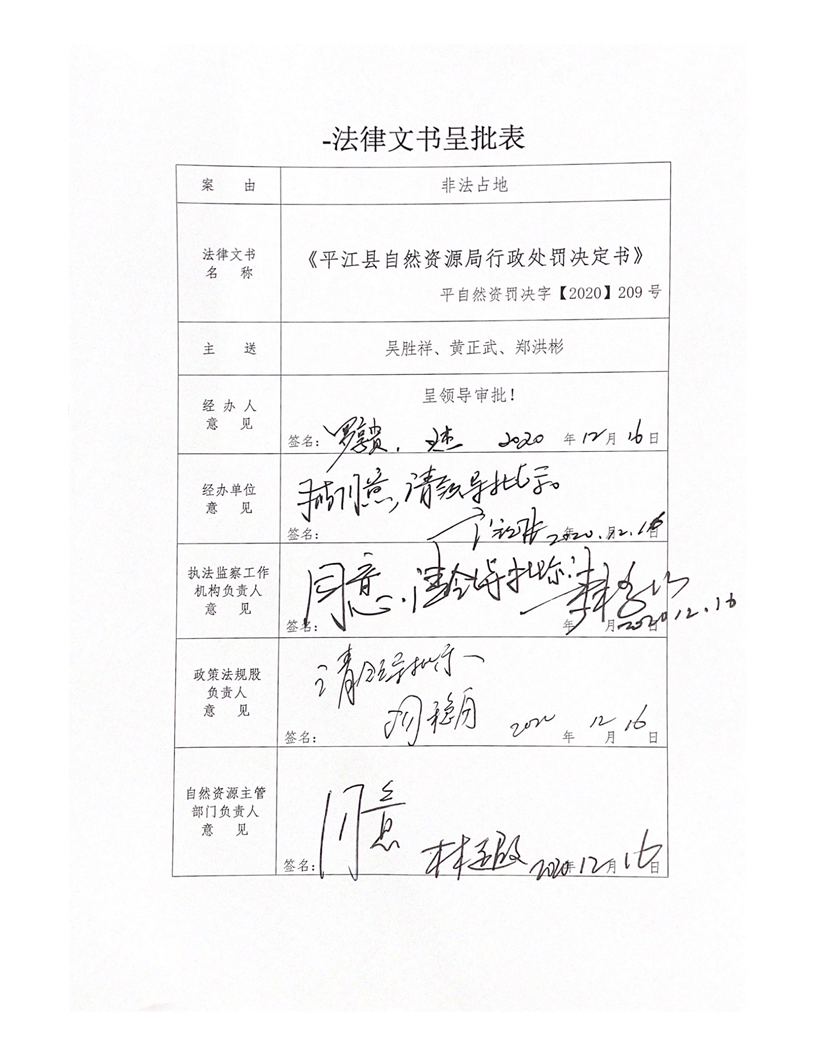 -法律文书呈批表
案 由
非法占地
法律文书
名 称
《平江县自然资源局行政处罚决定书》
平自然资罚决字【2020】209 号
主 送
吴胜祥、黄正武、郑洪彬
经 办 人
意 见
呈领导审批！
签名： 2020 年 12 月 16 日
经办单位
意 见
同意，请领导批示。
签名： 2020年.12.16日
执法监察工作
机构负责人
意 见
同意，请领导批示
签名： 年 月 日 2020.12.16
政策法规股
负责人
意 见
请领导批示
签名： 2020 年 12 月 16 日
自然资源主管
部门负责人
意 见
同意
签名： 2020年12月16日